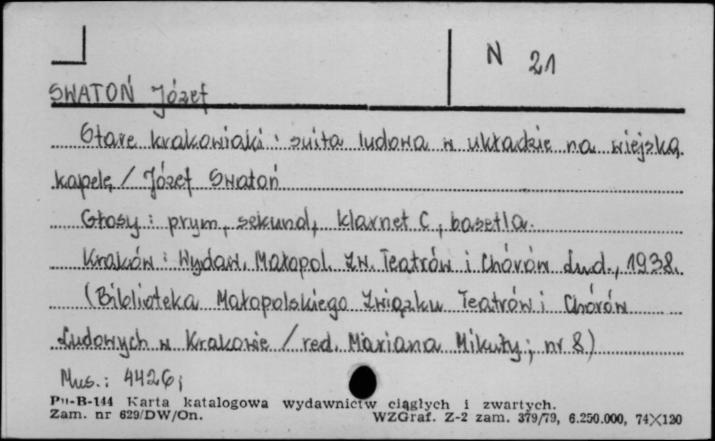 N 21
SWATOŃ Józef
Stare krakowiaki : suita ludowa w układzie na wiejską
kapelę / Józef Swatoń
Głosy : prym, sekund, klarnet C, basetla.
Kraków : Wydaw. Małopol. Zw. Teatrów i Chórów Lud., 1938.
(Biblioteka Małopolskiego Związku Teatrów i Chórów
Ludowych w Krakowie / red. Mariana Mikuty ; nr 8)
Mus.: 4426;
Pu-B-144 Karta katalogowa wydawnictw ciągłych i zwartych.
Zam. nr 629/DW/On. WZGraf. Z-2 zam. 379/79, 6.250.000, 74×120